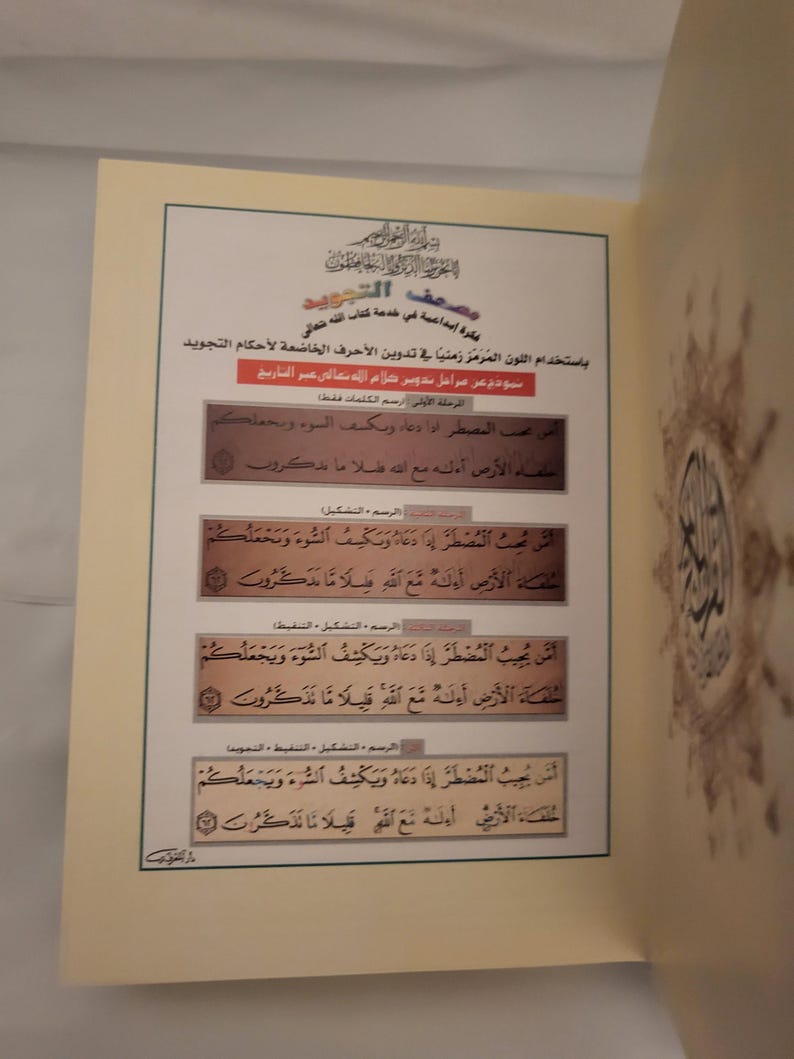 بسم الله الرحمن الرحيم
إنا نحن نزلنا الذكر وإنا له لحافظون
مصحف التجويد
فكرة إبداعية في خدمة كتاب الله تعالى
باستخدام اللون المُرَمّز زمنيًا في تدوين الأحرف الخاضعة لأحكام التجويد
نموذج عن مراحل تدوين كلام الله تعالى عبر التاريخ
المرحلة الأولى: (رسم الكلمات فقط)
امن يجيب المضطر اذا دعاه ويكشف السوء ويجعلكم
خلفاء الأرض أءله مع الله قليلا ما تذكرون ٦٢
المرحلة الثانية: (الرسم + التشكيل)
أَمَّن يُجِيبُ الْمُضْطَرَّ إِذَا دَعَاهُ وَيَكْشِفُ السُّوءَ وَيَجْعَلُكُمْ
خُلَفَاءَ الْأَرْضِ أَءِلَٰهٌ مَّعَ اللَّهِ قَلِيلًا مَّا تَذَكَّرُونَ ٦٢
المرحلة الثالثة: (الرسم + التشكيل + التنقيط)
أَمَّن يُجِيبُ الْمُضْطَرَّ إِذَا دَعَاهُ وَيَكْشِفُ السُّوٓءَ وَيَجْعَلُكُمْ
خُلَفَآءَ الْأَرْضِ أَءِلَٰهٌ مَّعَ اللَّهِ ۚ قَلِيلًا مَّا تَذَكَّرُونَ ٦٢
الآن: (الرسم + التشكيل + التنقيط + التجويد)
أَمَّن يُجِيبُ الْمُضْطَرَّ إِذَا دَعَاهُ وَيَكْشِفُ السُّوٓءَ وَيَجْعَلُكُمْ
خُلَفَآءَ الْأَرْضِ أَءِلَٰهٌ مَّعَ اللَّهِ ۚ قَلِيلًا مَّا تَذَكَّرُونَ ٦٢
دار المعرفة